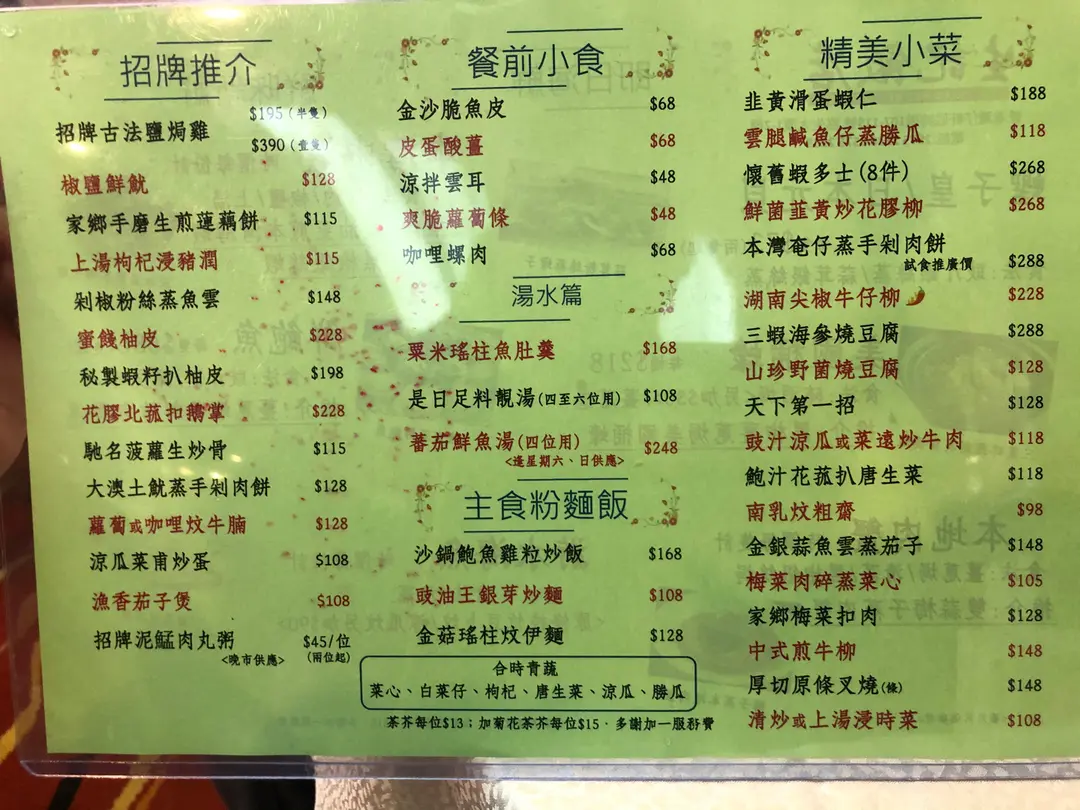 招牌推介
招牌古法鹽焗雞 $195(半隻)
$390(壹隻)
椒鹽鮮魷 $128
家鄉手磨生煎蓮藕餅 $115
上湯枸杞浸豬潤 $115
剁椒粉絲蒸魚雲 $148
蜜餞柚皮 $228
秘製蝦籽扒柚皮 $198
花膠北菰扣鵝掌 $228
馳名菠蘿生炒骨 $115
大澳土魷蒸手剁肉餅 $128
蘿蔔或咖喱炆牛腩 $128
涼瓜菜甫炒蛋 $108
漁香茄子煲 $108
招牌泥鯭肉丸粥 $45/位
<晚市供應> (兩位起)
餐前小食
金沙脆魚皮 $68
皮蛋酸薑 $68
涼拌雲耳 $48
爽脆蘿蔔條 $48
咖喱螺肉 $68
湯水篇
粟米瑤柱魚肚羹 $168
是日足料靚湯(四至六位用) $108
蕃茄鮮魚湯(四位用) $248
<逢星期六、日供應>
主食粉麵飯
沙鍋鮑魚雞粒炒飯 $168
豉油王銀芽炒麵 $108
金菇瑤柱炆伊麵 $128
合時青蔬
菜心、白菜仔、枸杞、唐生菜、涼瓜、勝瓜
茶芥每位$13；加菊花茶芥每位$15．多謝加一服務費
精美小菜
韭黃滑蛋蝦仁 $188
雲腿鹹魚仔蒸勝瓜 $118
懷舊蝦多士(8件) $268
鮮菌韮黃炒花膠柳 $268
本灣奄仔蒸手剁肉餅
試食推廣價 $288
湖南尖椒牛仔柳 $228
三蝦海參燒豆腐 $288
山珍野菌燒豆腐 $128
天下第一招 $128
豉汁涼瓜或菜遠炒牛肉 $118
鮑汁花菰扒唐生菜 $118
南乳炆粗齋 $98
金銀蒜魚雲蒸茄子 $148
梅菜肉碎蒸菜心 $105
家鄉梅菜扣肉 $128
中式煎牛柳 $148
厚切原條叉燒(條) $148
清炒或上湯浸時菜 $108